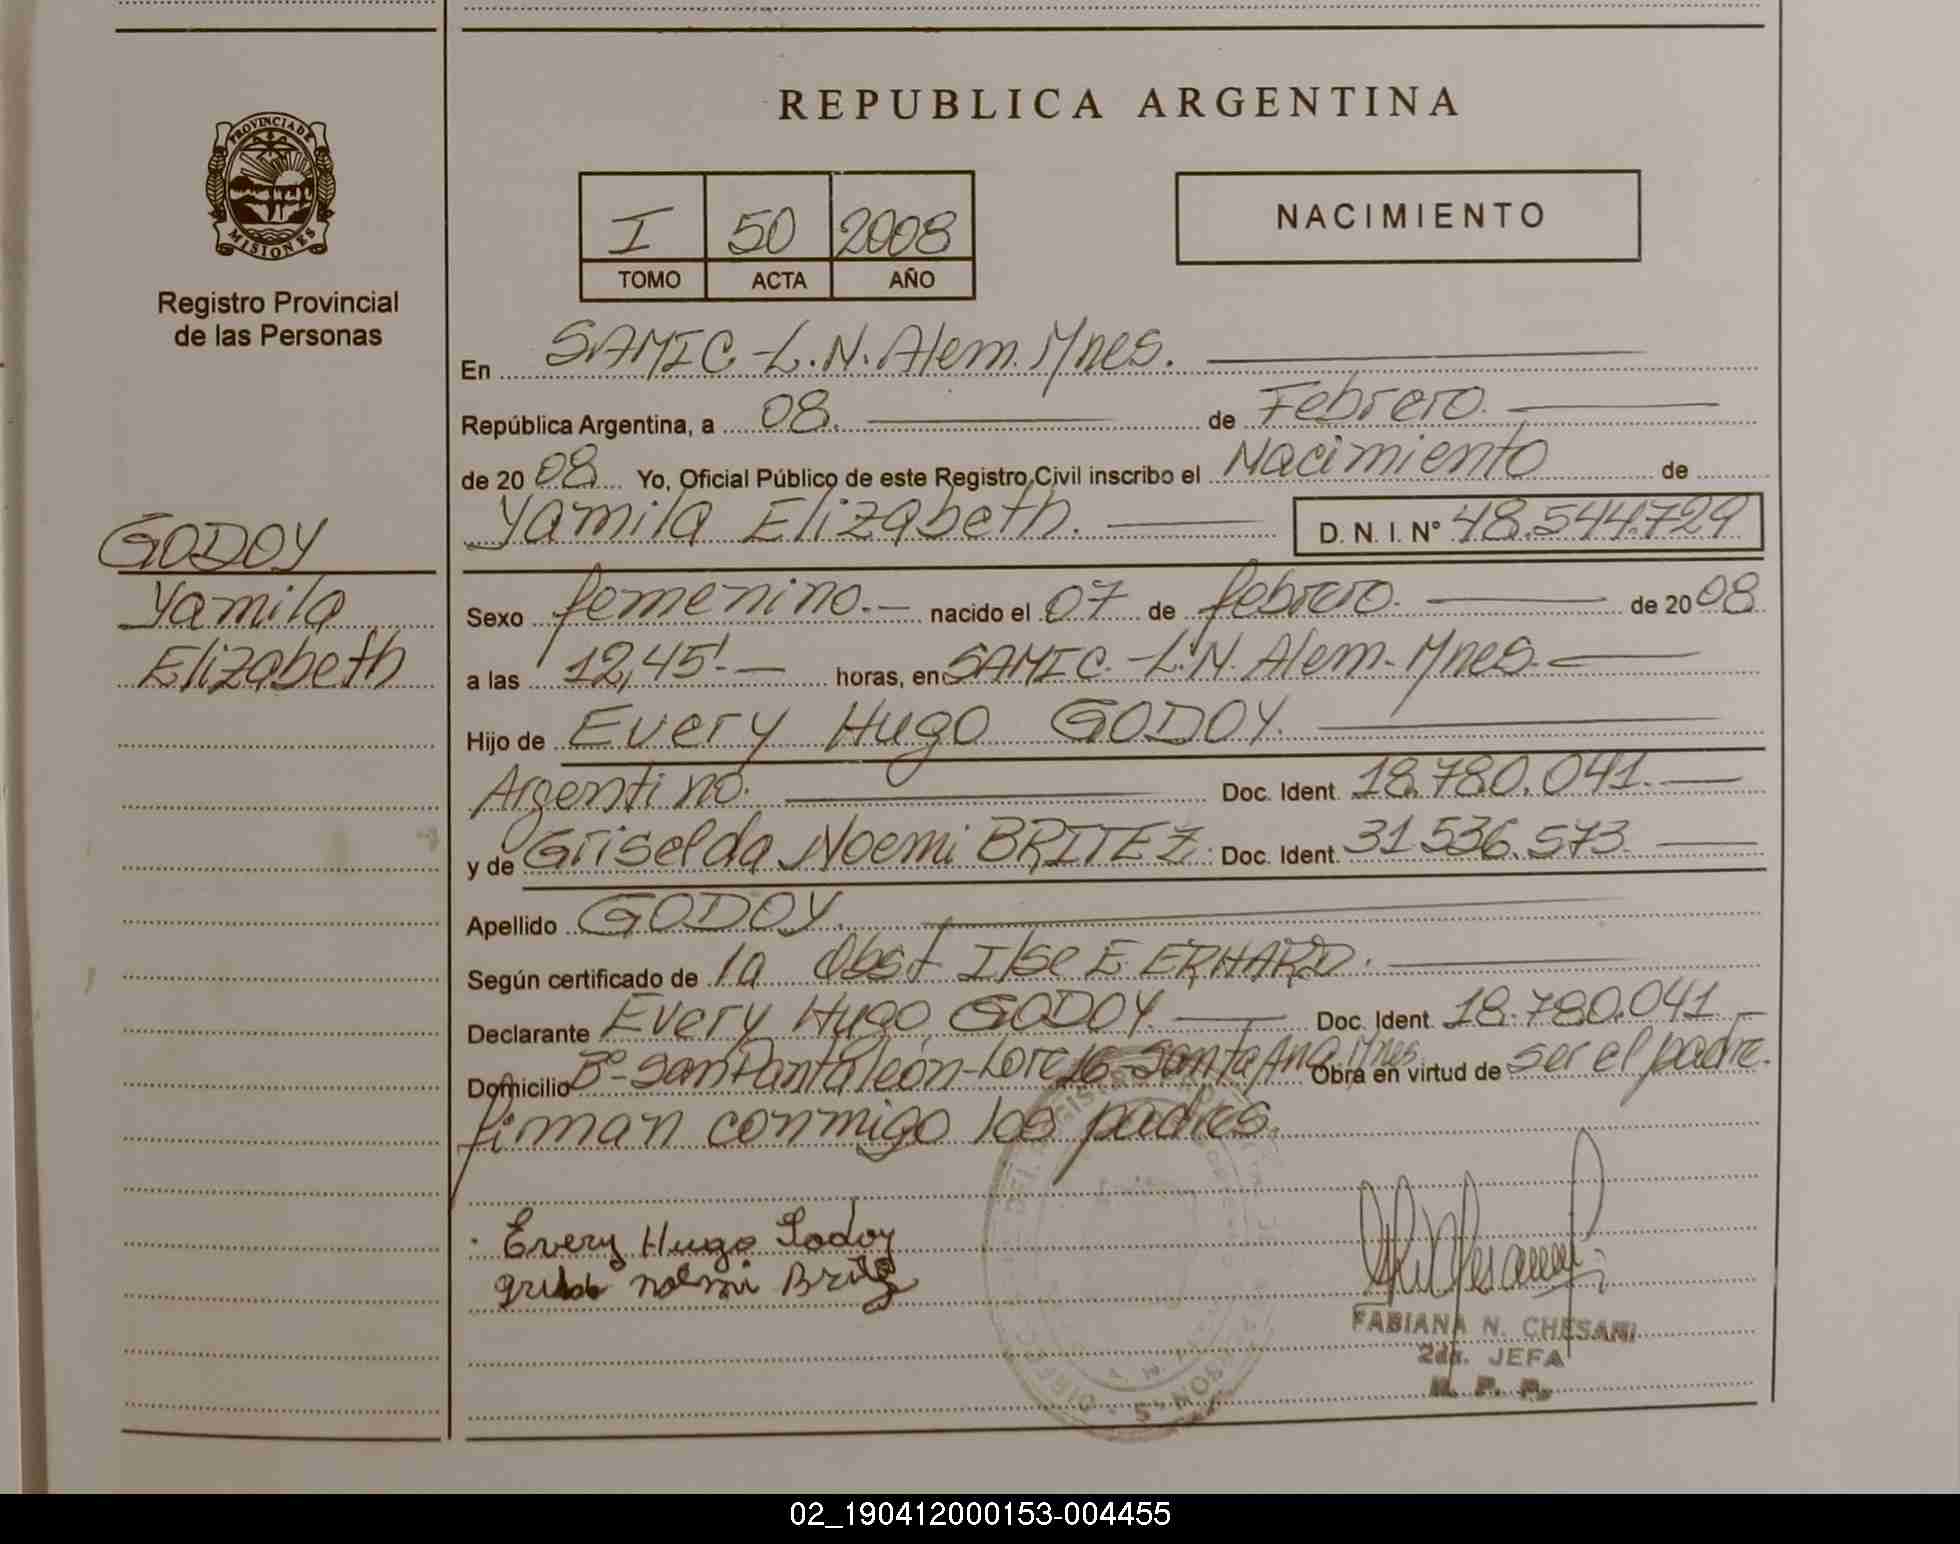 REPUBLICA ARGENTINA
PROVINCIA DE
MISIONES
Registro Provincial
de las Personas
I 50 2008
TOMO ACTA AÑO
NACIMIENTO
GODOY
Yamila
Elizabeth
En SAMIC-L.N. Alem. Mnes.
República Argentina, a 08. de Febrero.
de 2008 Yo, Oficial Público de este Registro Civil inscribo el Nacimiento de
Yamila Elizabeth. D. N. I. N° 48.544.729
Sexo femenino.- nacido el 07 de febrero. de 2008
a las 12,45'.- horas, en SAMIC.-L.N. Alem-Mnes.
Hijo de Every Hugo GODOY.
Argentino. Doc. Ident. 18.780.041.
y de Griselda Noemi BRITEZ. Doc. Ident. 31.536.573.
Apellido GODOY.
Según certificado de la Obst Ilse E. ERHARD.
Declarante Every Hugo GODOY. Doc. Ident. 18.780.041
Domicilio B°-San Pantaleón-Lote 16-Santa Ana Mnes Obra en virtud de ser el padre.
firman conmigo los padres.
Every Hugo Godoy
Noemi Britez
FABIANA N. CHESANI
2da. JEFA
R. P. P.
02_190412000153-004455